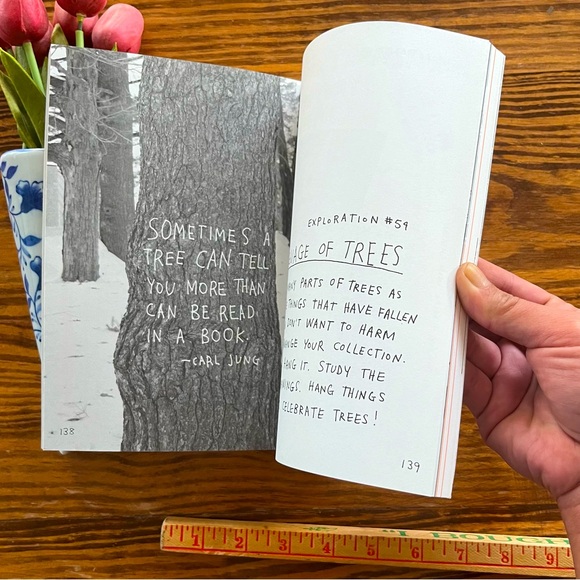 SOMETIMES A
TREE CAN TELL
YOU MORE THAN
CAN BE READ
IN A BOOK.
–CARL JUNG
138
EXPLORATION #59
AGE OF TREES
PARTS OF TREES AS
THINGS THAT HAVE FALLEN
DON'T WANT TO HARM
YOUR COLLECTION.
IT. STUDY THE
HANG THINGS
CELEBRATE TREES!
139
"I BOUGH
1 2 3 4 5 6 7 8 9